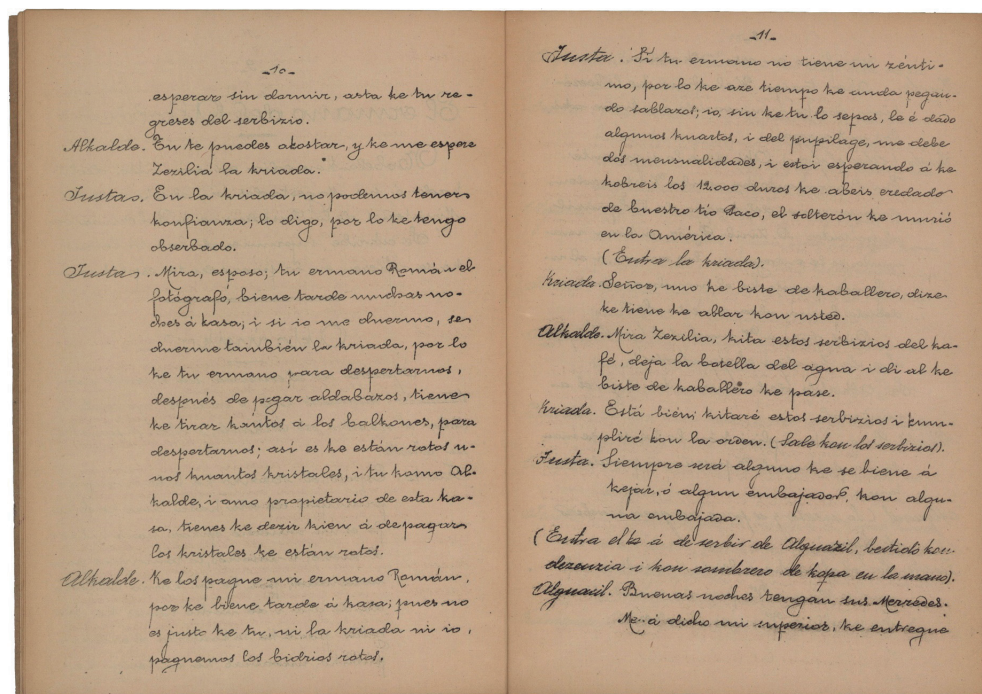 -10-
esperar sin dormir, asta ke tu re-
greses del serbizio.
Alkalde. Tu te puedes akostar, y ke me espere
Zezilia la kriada.
Justa. En la kriada, no podemos tener
konfianza; lo digo, por lo ke tengo
obserbado.
Justa. Mira, esposo; tu ermano Román el
fotógrafo, biene tarde muchas no-
ches á kasa; i si io me duermo, se
duerme también la kriada, por lo
ke tu ermano para despertarnos,
después de pegar aldabazos, tiene
ke tirar kantos á los balkones, para
despertarnos; así es ke están rotos u-
nos kuantos kristales, i tu komo Al-
kalde, i amo propietario de esta ka-
sa, tienes ke dezir kien á de pagar
los kristales ke están rotos.
Alkalde. Ke los pague mi ermano Román,
por ke biene tarde á kasa; pues no
es justo ke tu, ni la kriada ni io,
paguemos los bidrios rotos.
-11-
Justa. Si tu ermano no tiene ni zénti-
mo, por lo ke aze tiempo ke anda pegan-
do sablazos; io, sin ke tu lo sepas, le é dado
algunos kuartos, i del pupilage, me debe
dos mensualidades, i estoi esperando á ke
kobreis los 12.000 duros ke abeis eredado
de buestro tío Paco, el solterón ke murió
en la América.
(Entra la kriada).
Kriada. Señor, uno ke biste de kaballero, dize
ke tiene ke ablar kon usted.
Alkalde. Mira Zezilia, kita estos serbizios del ka-
fé, deja la botella del agua i di al ke
biste de kaballero ke pase.
Kriada. Está bién; kitaré estos serbizios i kum-
pliré kon la orden. (Sale kon los serbizios).
Justa. Siempre será alguno ke se biene á
kejar, ó algun embajador, kon algu-
na embajada.
(Entra el ke á de serbir de Alguazil, bestido kon
dezenzia i kon sombrero de kopa en la mano).
Alguazil. Buenas noches tengan sus Merzedes.
Me á dicho mi superior, ke entregue